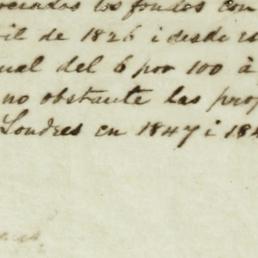 los fondos con
de 1826 i desde es
ual del 6 por 100 à
no obstante las prop
Londres en 1847 i 184